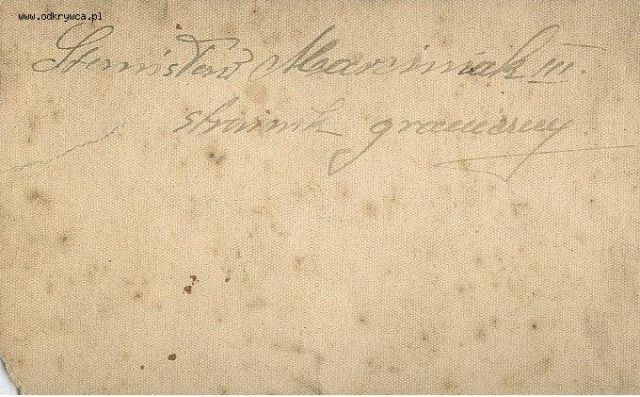 www.odkrywca.pl
Stanisław Marciniak III.
strażnik graniczny